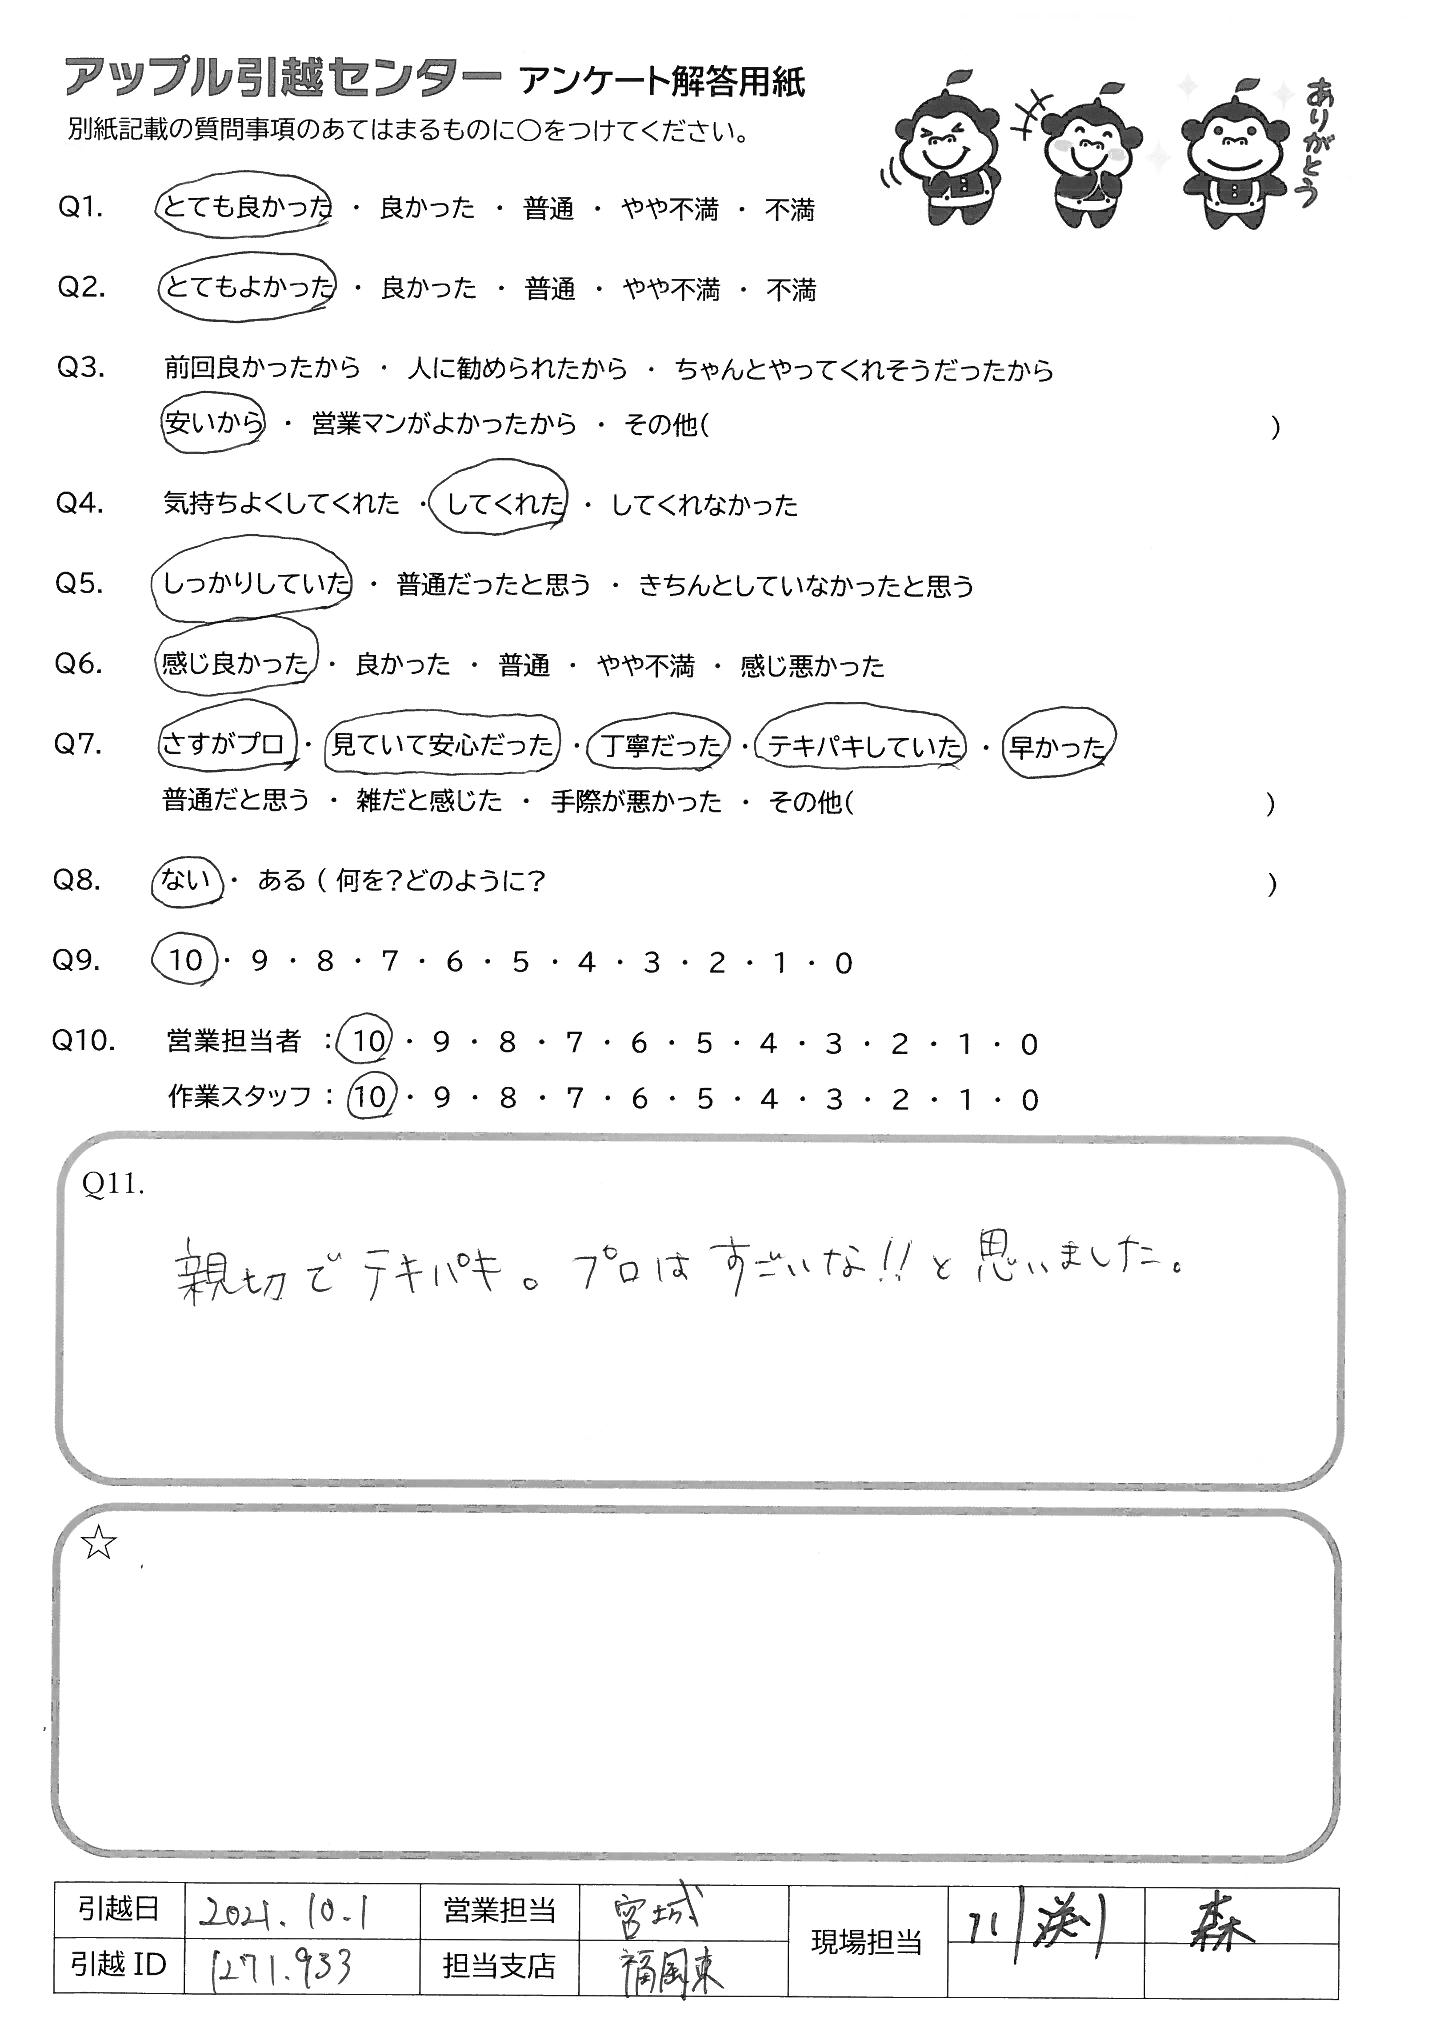 アップル引越センター アンケート解答用紙
別紙記載の質問事項のあてはまるものに○をつけてください。
ありがとう
Q1. とても良かった ・ 良かった ・ 普通 ・ やや不満 ・ 不満
Q2. とてもよかった ・ 良かった ・ 普通 ・ やや不満 ・ 不満
Q3. 前回良かったから ・ 人に勧められたから ・ ちゃんとやってくれそうだったから
安いから ・ 営業マンがよかったから ・ その他( )
Q4. 気持ちよくしてくれた ・ してくれた ・ してくれなかった
Q5. しっかりしていた ・ 普通だったと思う ・ きちんとしていなかったと思う
Q6. 感じ良かった ・ 良かった ・ 普通 ・ やや不満 ・ 感じ悪かった
Q7. さすがプロ ・ 見ていて安心だった ・ 丁寧だった ・ テキパキしていた ・ 早かった
普通だと思う ・ 雑だと感じた ・ 手際が悪かった ・ その他( )
Q8. ない ・ ある ( 何を?どのように? )
Q9. 10 ・ 9 ・ 8 ・ 7 ・ 6 ・ 5 ・ 4 ・ 3 ・ 2 ・ 1 ・ 0
Q10. 営業担当者 : 10 ・ 9 ・ 8 ・ 7 ・ 6 ・ 5 ・ 4 ・ 3 ・ 2 ・ 1 ・ 0
作業スタッフ : 10 ・ 9 ・ 8 ・ 7 ・ 6 ・ 5 ・ 4 ・ 3 ・ 2 ・ 1 ・ 0
Q11.
親切でテキパキ。プロはすごいな!!と思いました。
☆
引越日 2021.10.1 営業担当 宮城 現場担当 森
引越 ID 1271.933 担当支店 福岡東